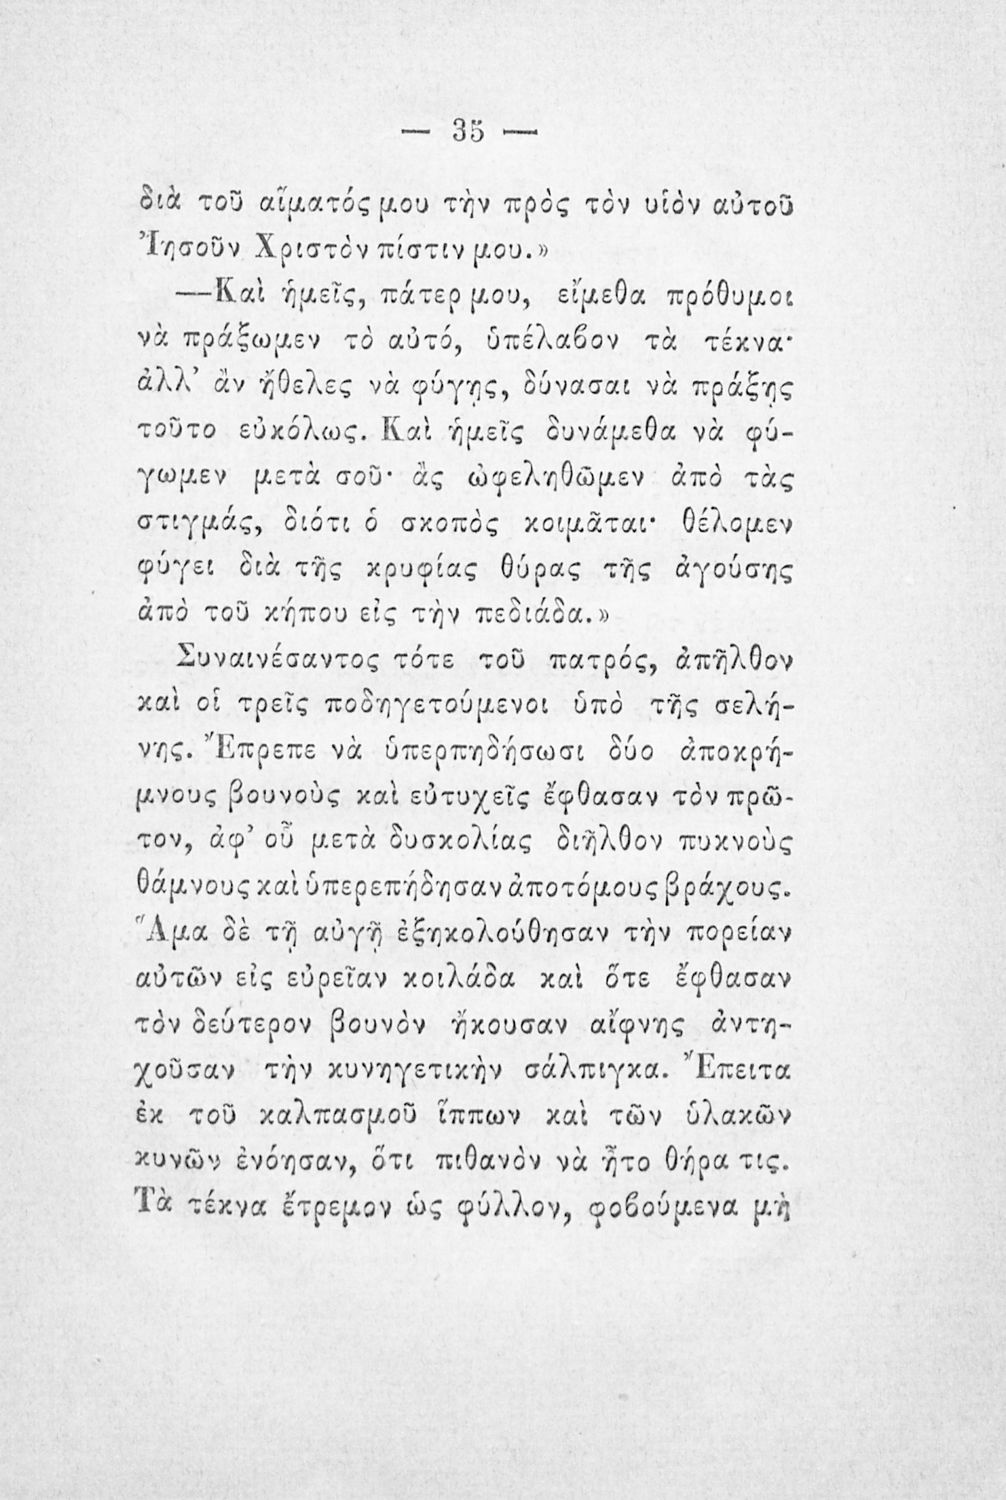 — 35 —
διὰ τοῦ αἵματός μου τὴν πρὸς τὸν υἱὸν αὐτοῦ
Ἰησοῦν Χριστὸν πίστιν μου.»
—Καὶ ἡμεῖς, πάτερ μου, εἴμεθα πρόθυμοι
νὰ πράξωμεν τὸ αὐτό, ὑπέλαβον τὰ τέκνα·
ἀλλ’ ἂν ἤθελες νὰ φύγῃς, δύνασαι νὰ πράξῃς
τοῦτο εὐκόλως. Καὶ ἡμεῖς δυνάμεθα νὰ φύ-
γωμεν μετὰ σοῦ· ἂς ὠφεληθῶμεν ἀπὸ τὰς
στιγμάς, διότι ὁ σκοπὸς κοιμᾶται· θέλομεν
φύγει διὰ τῆς κρυφίας θύρας τῆς ἀγούσης
ἀπὸ τοῦ κήπου εἰς τὴν πεδιάδα.»
Συναινέσαντος τότε τοῦ πατρός, ἀπῆλθον
καὶ οἱ τρεῖς ποδηγετούμενοι ὑπὸ τῆς σελή-
νης. Ἔπρεπε νὰ ὑπερπηδήσωσι δύο ἀποκρή-
μνους βουνοὺς καὶ εὐτυχεῖς ἔφθασαν τὸν πρῶ-
τον, ἀφ’ οὗ μετὰ δυσκολίας διῆλθον πυκνοὺς
θάμνους καὶ ὑπερεπήδησαν ἀποτόμους βράχους.
Ἅμα δὲ τῇ αὐγῇ ἐξηκολούθησαν τὴν πορείαν
αὐτῶν εἰς εὐρεῖαν κοιλάδα καὶ ὅτε ἔφθασαν
τὸν δεύτερον βουνὸν ἤκουσαν αἴφνης ἀντη-
χοῦσαν τὴν κυνηγετικὴν σάλπιγκα. Ἔπειτα
ἐκ τοῦ καλπασμοῦ ἵππων καὶ τῶν ὑλακῶν
κυνῶν ἐνόησαν, ὅτι πιθανὸν νὰ ἦτο θήρα τις.
Τὰ τέκνα ἔτρεμον ὡς φύλλον, φοβούμενα μὴ